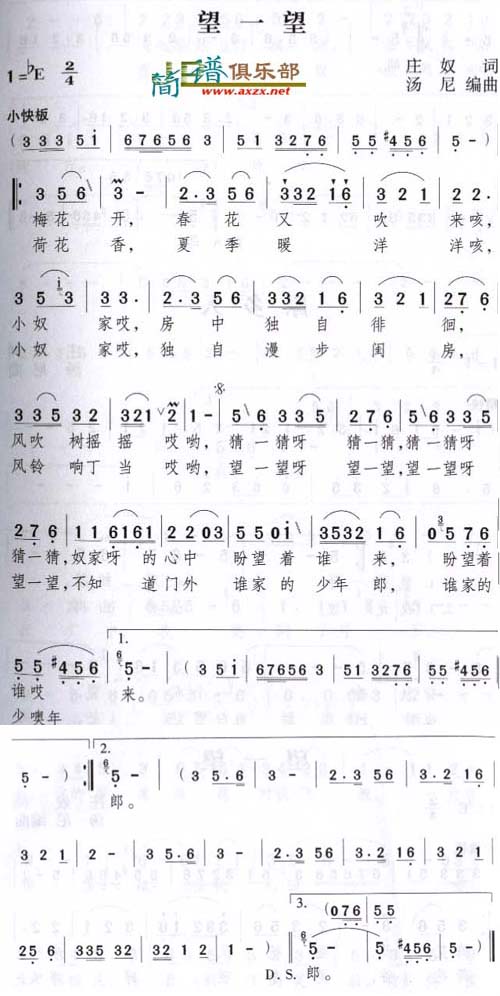 望一望
1=♭E 2/4
简谱俱乐部
www.axzx.net
庄奴 词
汤尼 编曲
小快板
( 3 3 3 5 i | 67656 3 | 5 1 3276 | 5 5 #456 | 5 - )
3 5 6 | 3 - | 2·3 5 6 | 332 16 | 3 2 1 | 2 2·
梅花 开, 春 花 又 吹 来咳,
荷花 香, 夏 季 暖 洋 洋咳,
3 5 3 | 3 3· | 2·3 5 6 | 332 1 6 | 3 2 1 | 2 7 6
小奴 家哎, 房 中 独 自 徘 徊,
小奴 家哎, 独 自 漫 步 闺 房,
3 3 5 3 2 | 321 2 | 1 - | 5 6 335 | 2 7 6 | 5 6 335
风吹 树摇 摇 哎哟, 猜 一猜呀 猜一猜,猜一猜呀
风铃 响丁 当 哎哟, 望 一望呀 望一望,望一望呀
2 7 6 | 1 1 6161 | 2 2 0 3 | 5 5 0 i | 3532 1 6 | 0 5 7 6
猜一猜,奴家呀 的心中 盼望着 谁 来, 盼望着
望一望,不知 道门外 谁家的 少年 郎, 谁家的
5 5 #456 | 5 - | ( 3 5 i | 67656 3 | 5 1 3276 | 5 5 #456
1.
谁哎 来。
少噢年
5 - ) 5 - | ( 3 5·6 | 3 - | 2·3 5 6 | 3·2 1 6
2.
郎。
3 2 1 | 2 - | 3 5·6 | 3 - | 2·3 56 | 3·2 16 | 3 2 1
3.
( 0 7 6 | 5 5
25 6 | 335 32 | 32 1 2 | 1 - ) 5 - | 5 #456 | 5 - | 5 -
D.S.郎。